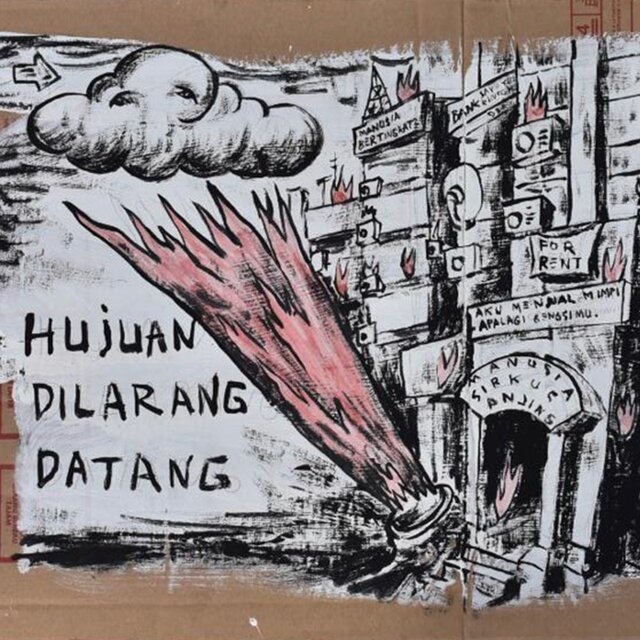 HUJUAN
DILARANG
DATANG
MANUSIA
BERTINGKAT2
BANK MY
FOR
RENT
AKU MENJUAL MIMPI
APALAGI GENGSIMU.
MANUSIA
SIRKUS
ANJING